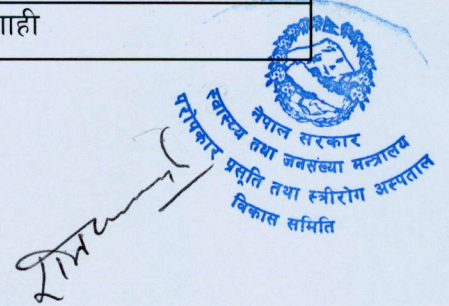 गाही
नेपाल सरकार
स्वास्थ्य तथा जनसंख्या मन्त्रालय
परोपकार प्रसूति तथा स्त्रीरोग अस्पताल
विकास समिति